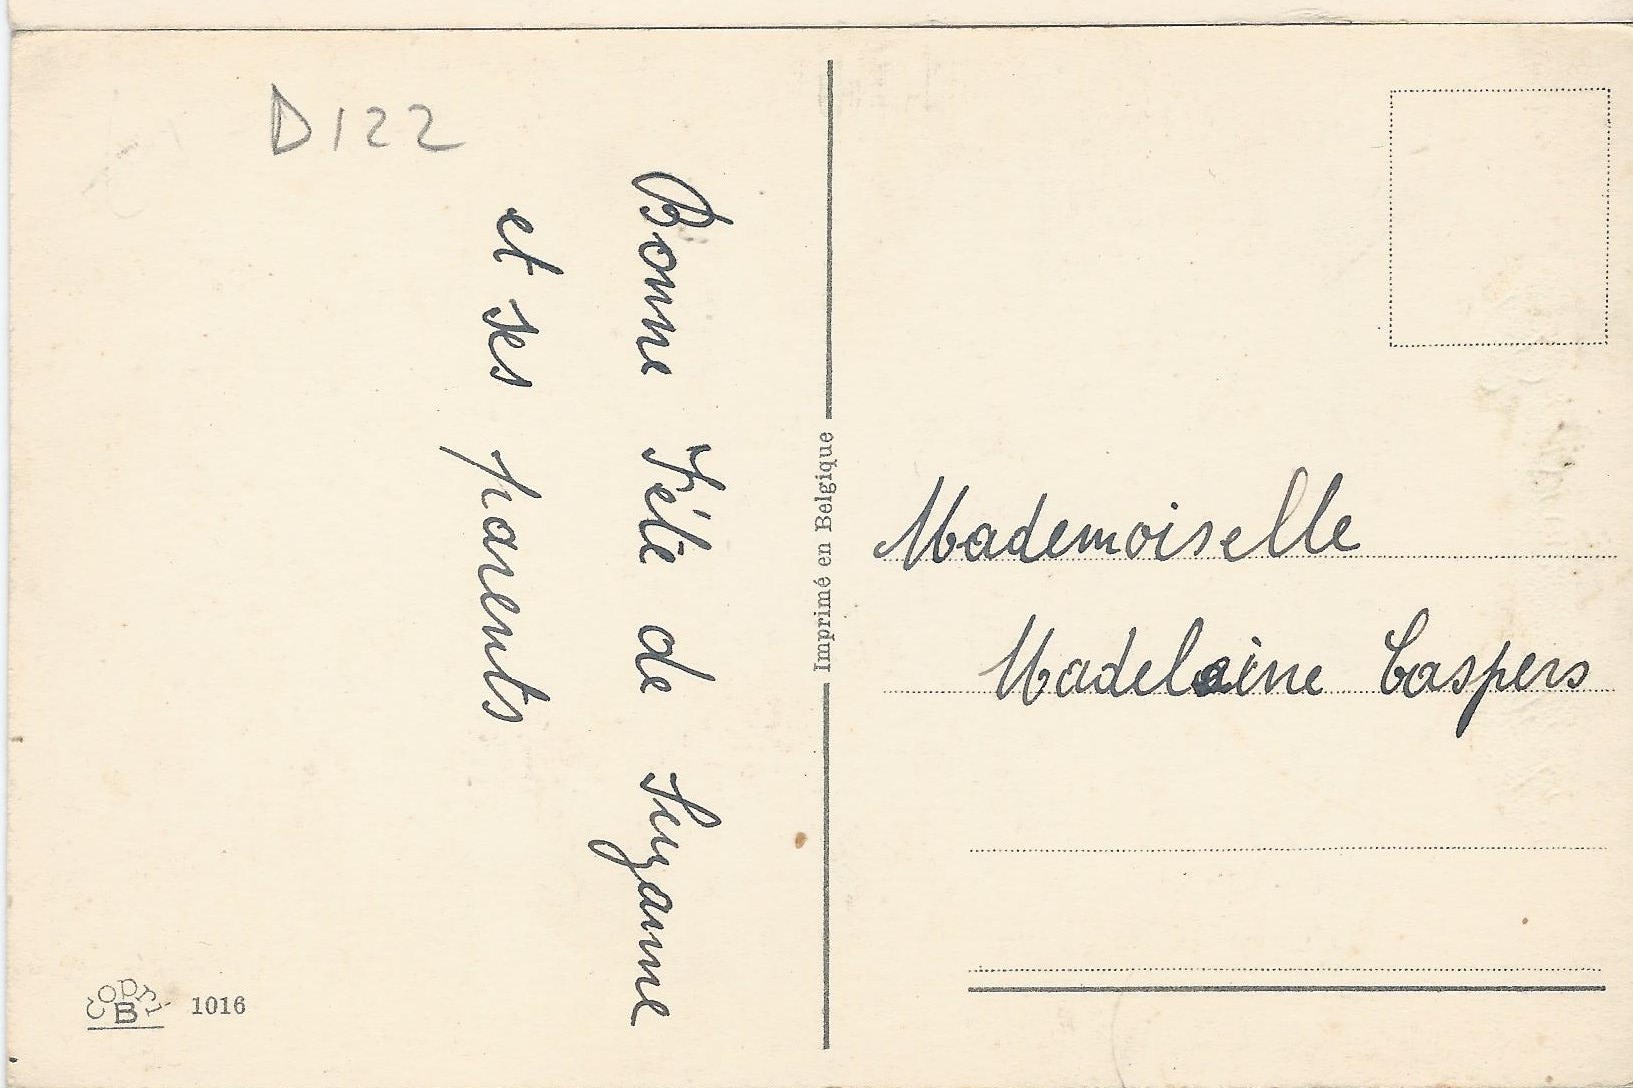 D122
Bonne Fête de Suzanne
et ses parents
Imprimé en Belgique
Mademoiselle
Madeleine Caspers
copri
B
1016